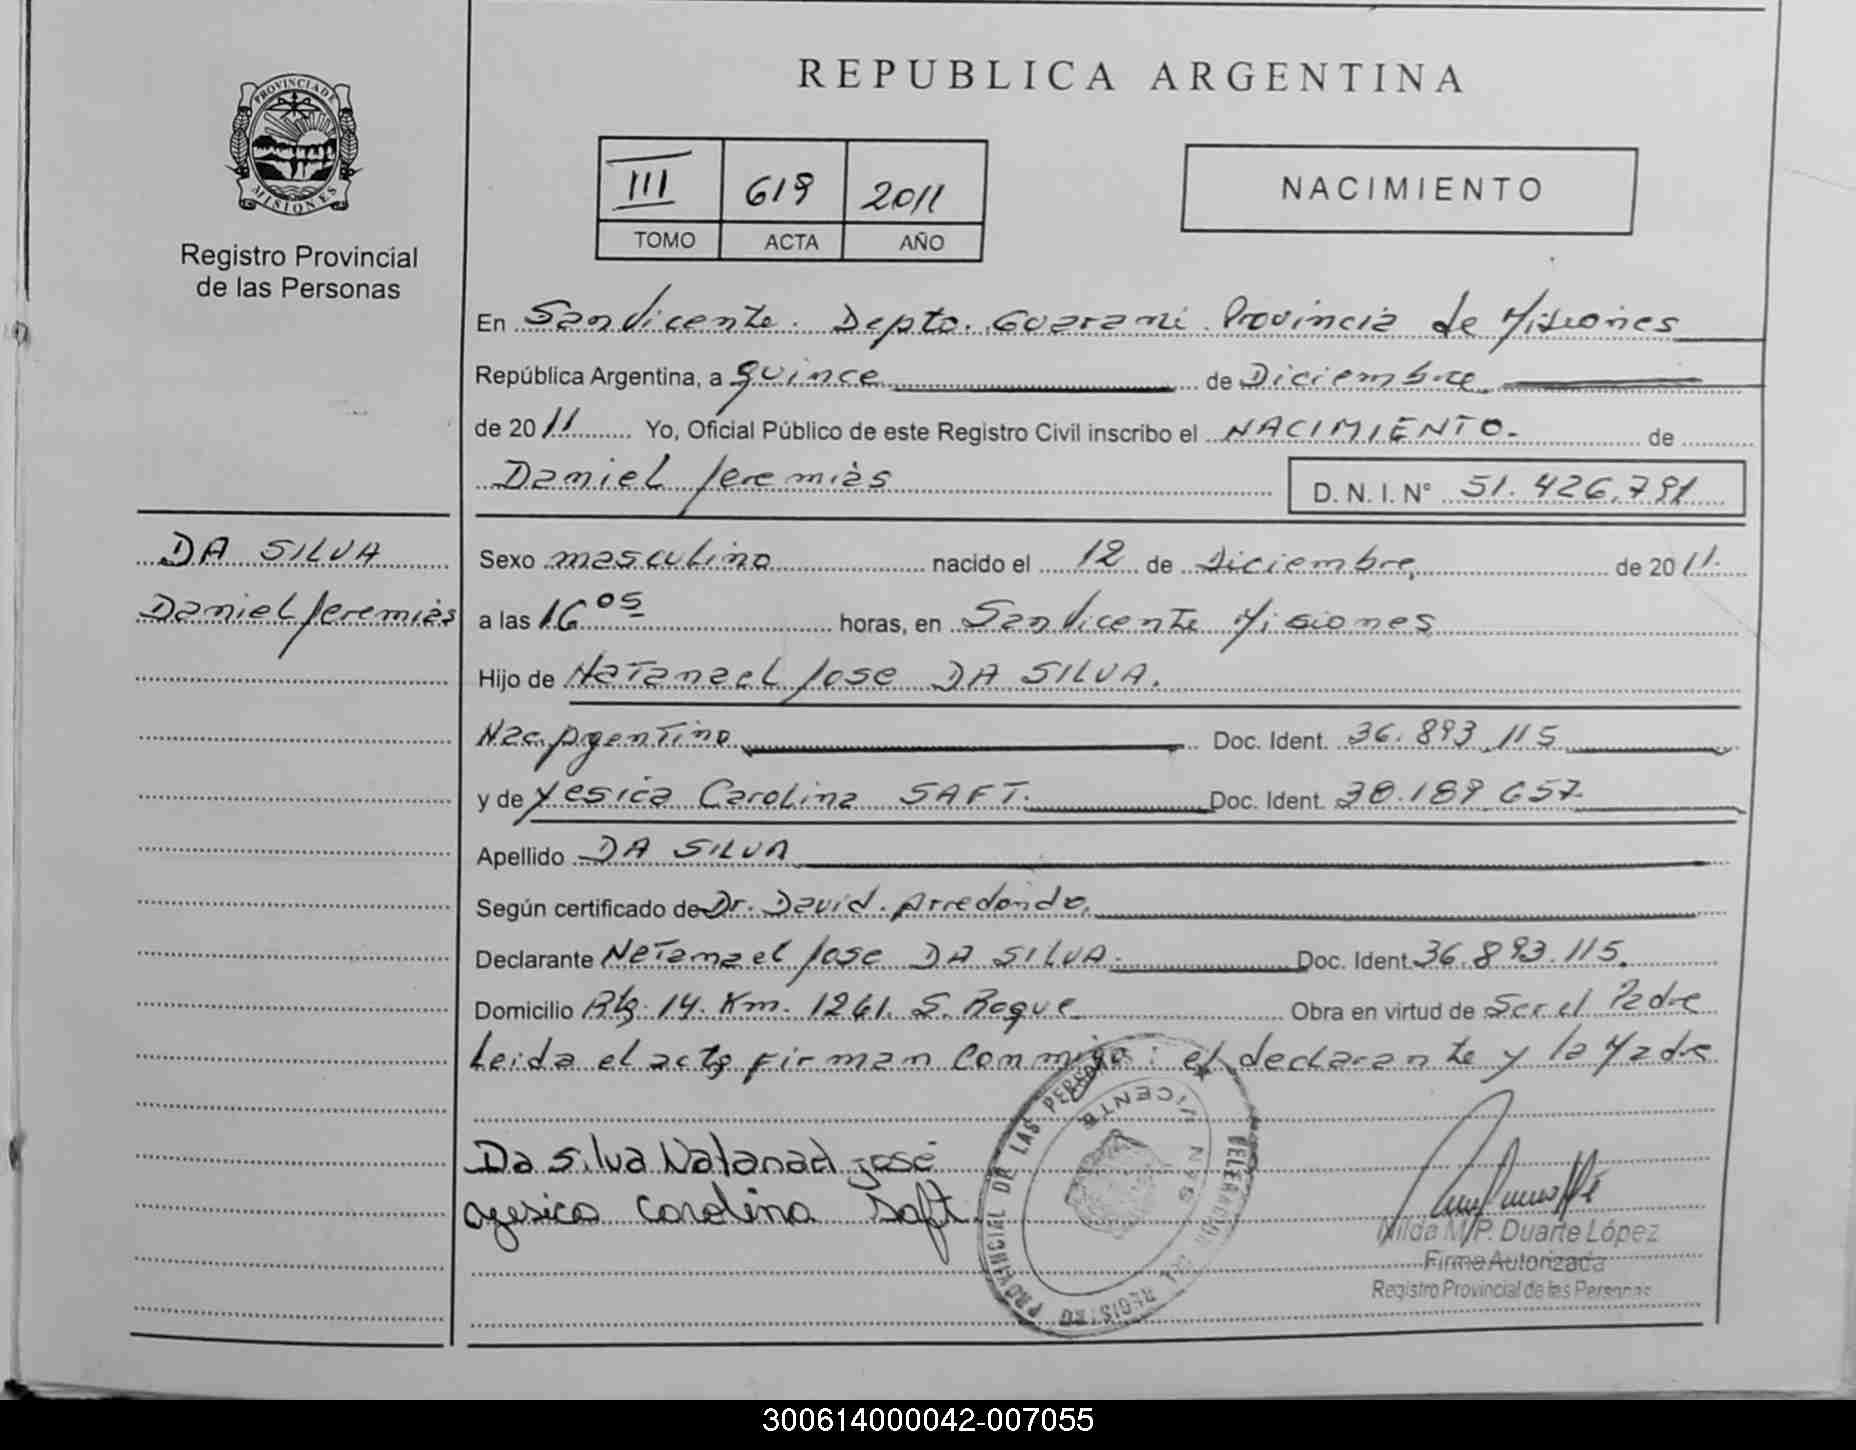 REPUBLICA ARGENTINA
PROVINCIA DE
MISIONES
Registro Provincial
de las Personas
III 619 2011
TOMO ACTA AÑO
NACIMIENTO
En San Vicente. Depto. Guarani. Provincia de Misiones
República Argentina, a quince de Diciembre
de 2011 Yo, Oficial Público de este Registro Civil inscribo el NACIMIENTO. de
Daniel Jeremiàs D. N. I. N° 51.426.791
DA SILVA
Daniel Jeremiàs
Sexo masculino nacido el 12 de Diciembre, de 2011.
a las 16 05 horas, en San Vicente Misiones
Hijo de Natanael Jose DA SILVA.
Nac. Argentino Doc. Ident. 36.893.115
y de Yesica Carolina SAFT. Doc. Ident. 38.189.657
Apellido DA SILVA
Según certificado de Dr. David. Arredondo,
Declarante Natanael Jose DA SILVA. Doc. Ident. 36.893.115.
Domicilio Rta. 14. Km. 1261. S. Roque Obra en virtud de Ser el Padre
Leida el acta firman conmigo: el declarante y la Madre
Da Silva Natanael josé
yesica Carolina Saft
REGISTRO PROVINCIAL DE LAS PERSONAS
SAN VICENTE
Nilda M. P. Duarte López
Firma Autorizada
Registro Provincial de las Personas
300614000042-007055